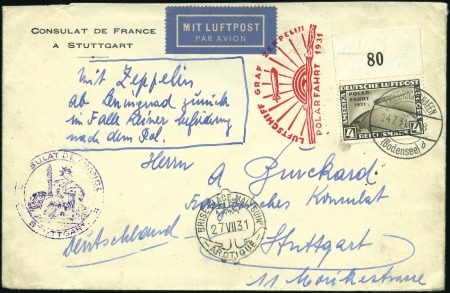 CONSULAT DE FRANCE
A STUTTGART
MIT LUFTPOST
PAR AVION
LUFTSCHIFF GRAF ZEPPELIN
POLARFAHRT 1931
80
DEUTSCHE LUFTPOST
POLAR-
FAHRT
1931
REICHSMARK
24.7.31
(Bodensee)
mit Zeppelin
ab Leningrad zurück
im Falle keiner
nach dem Pol.
CONSULAT DE FRANCE
STUTTGART
Herrn A Burckard
Französisches Konsulat
BRISE-GLACE "MALYGUIN"
27 VII 31
ARCTIQUE
Deutschland
Stuttgart
11 Mörikestrasse